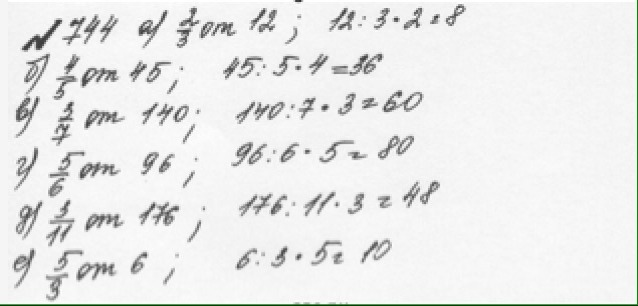 № 744 а) 2/3 от 12 ; 12 : 3 · 2 = 8
б) 4/5 от 45 ; 45 : 5 · 4 = 36
в) 3/7 от 140 ; 140 : 7 · 3 = 60
г) 5/6 от 96 ; 96 : 6 · 5 = 80
д) 3/11 от 176 ; 176 : 11 · 3 = 48
е) 5/3 от 6 ; 6 : 3 · 5 = 10